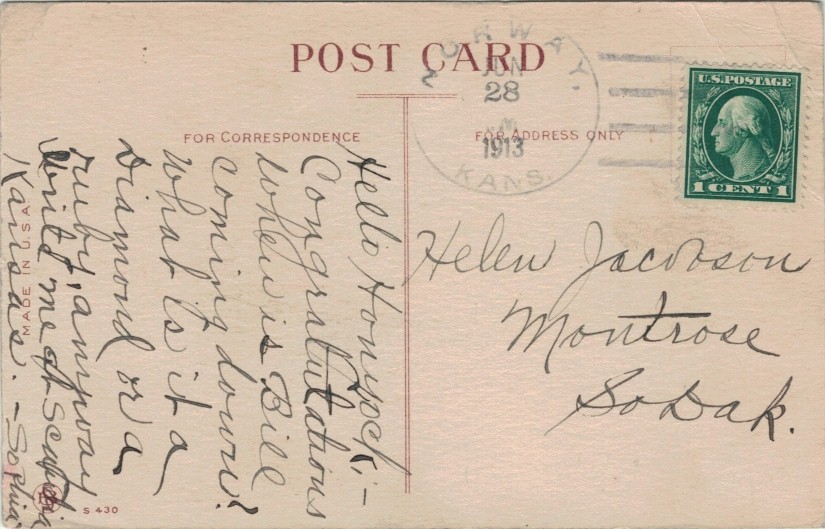 POST CARD
NORWAY,
JUN
28
1913
KANS.
U.S. POSTAGE
1 CENT 1
FOR CORRESPONDENCE
FOR ADDRESS ONLY
Hello Honyock;-
Congratulations
when is Bill
coming down?
What is it a
Diamond or a
Ruby, anyway
Write me at Scandia
Kansas. - Sophia.
Helen Jacobson
Montrose
So Dak.
MADE IN U.S.A.
S 430